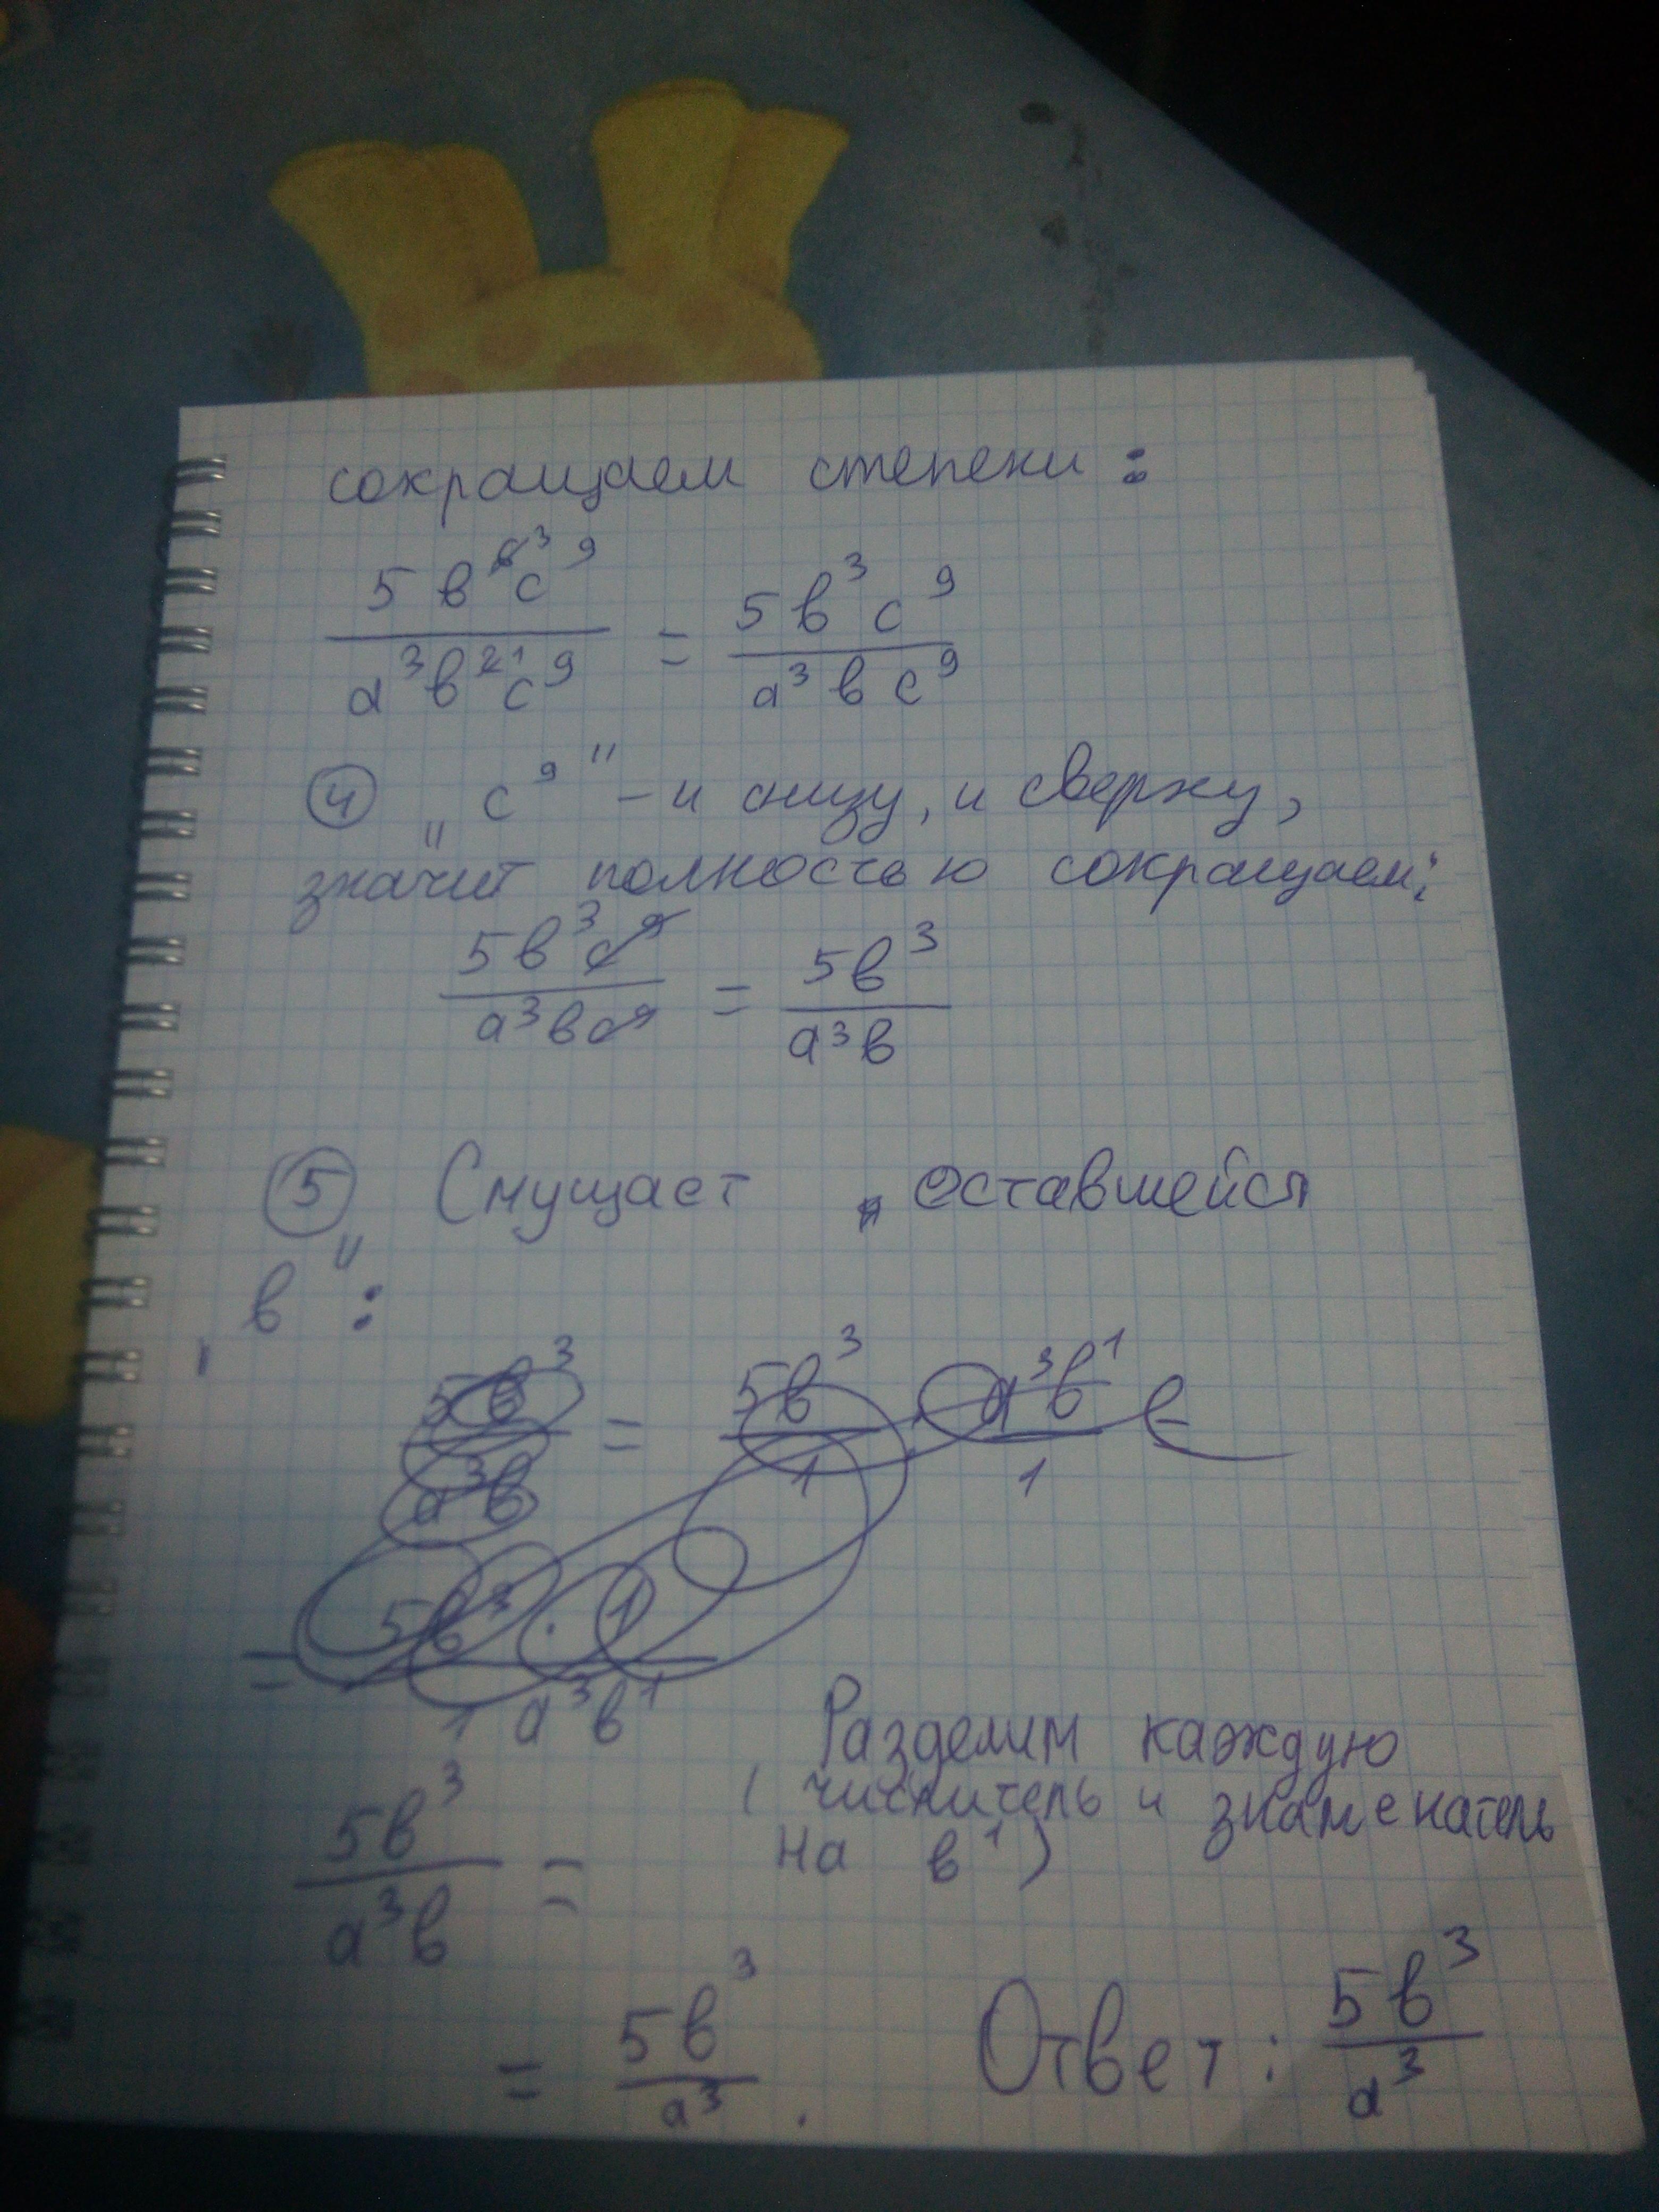 сокращаем степени:
5в⁶³с⁹ / а³в²¹с⁹ = 5в³с⁹ / а³вс⁹
④ „с⁹" – и снизу, и сверху,
значит полностью сокращаем:
5в³с⁹ / а³вс⁹ = 5в³ / а³в
⑤ Смущает оставшейся
„в":
5в³ / а³в = 5в³ / 1 : а³в¹ / 1 =
= 5в³ · 1 / 1 а³в¹
Разделим каждую
(числитель и знаменатель
на в¹)
5в³ / а³в =
= 5в³ / а³.
Ответ: 5в³ / а³